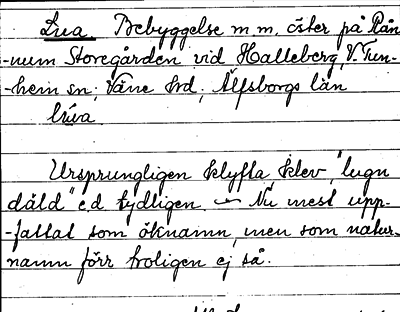 Lua. Bebyggelse m.m. öster på Rån-
-num Storegården vid Halleberg, V. Tun-
-hem sn; Väne hrd; Älfsborgs län
lúva
Ursprungligen klyfta klev, "lugn
däld" e.d. tydligen. — Nu mest upp-
-fattat som öknamn, men som natur-
namn förr troligen ej så.